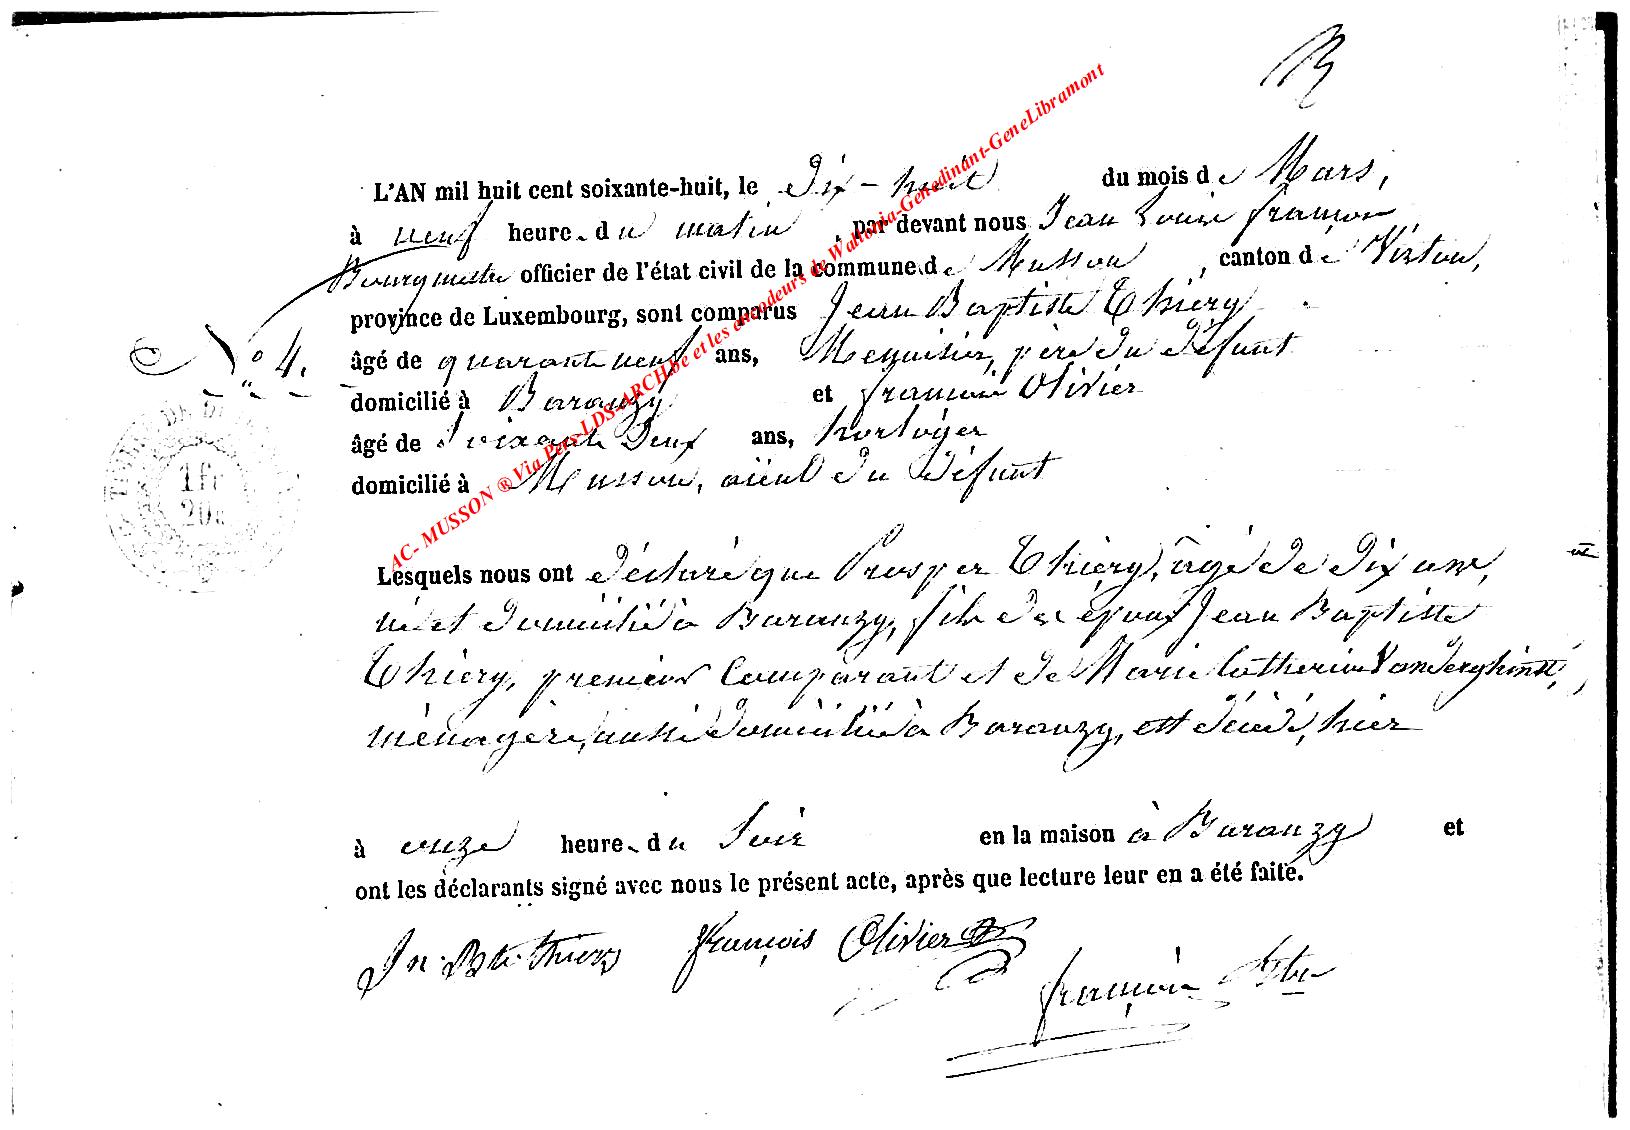 L'AN mil huit cent soixante-huit, le Dix-huit du mois de Mars,
à neuf heure du matin, par devant nous Jean Louis françois
Bourgmestre officier de l'état civil de la commune de Musson, canton de Virton,
province de Luxembourg, sont comparus Jean Baptiste Thiery
N° 4.
âgé de quarante neuf ans, Menuisier, père du défunt
domicilié à Baranzy et françois Olivier
âgé de Soixante Deux ans, horloger
domicilié à Musson, aïeul du Défunt
1 fr
20c
AC- MUSSON ® Via Pers-LDS-ARCH.be et les encodeurs de Wallonia-Genedinant-GeneLibramont
Lesquels nous ont déclaré que Prosper Thiery, âgé de Dix ans,
né et domicilié à Baranzy, fils des époux Jean Baptiste
Thiery, premier Comparant et de Marie Catherine Vanderghinst,
ménagère, aussi domiciliée à Baranzy, est décédé, hier
à onze heure du Soir en la maison à Baranzy et
ont les déclarants signé avec nous le présent acte, après que lecture leur en a été faite.
Jn. Bte. Thiery françois Olivier
françois